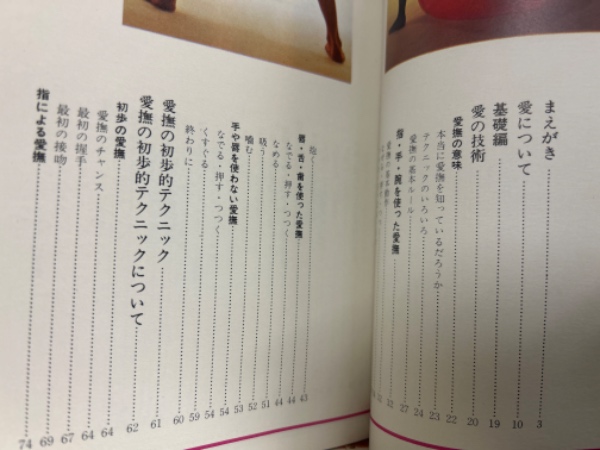 まえがき 3
愛について 10
基礎編 19
愛の技術 20
愛撫の意味 22
本当に愛撫を知っているだろうか 23
テクニックのいろいろ 24
愛撫の基本ルール 27
指・手・腕を使った愛撫 32
43
唇・舌・歯を使った愛撫 44
なでる・押す・つつく 44
なめる 51
吸う 52
噛む 53
手や唇を使わない愛撫 54
なでる・押す・つつく 54
くすぐる 59
終わりに 60
愛撫の初歩的テクニック 61
愛撫の初歩的テクニックについて 62
初歩の愛撫 64
愛撫のチャンス 64
最初の握手 67
最初の接吻 69
指による愛撫 74